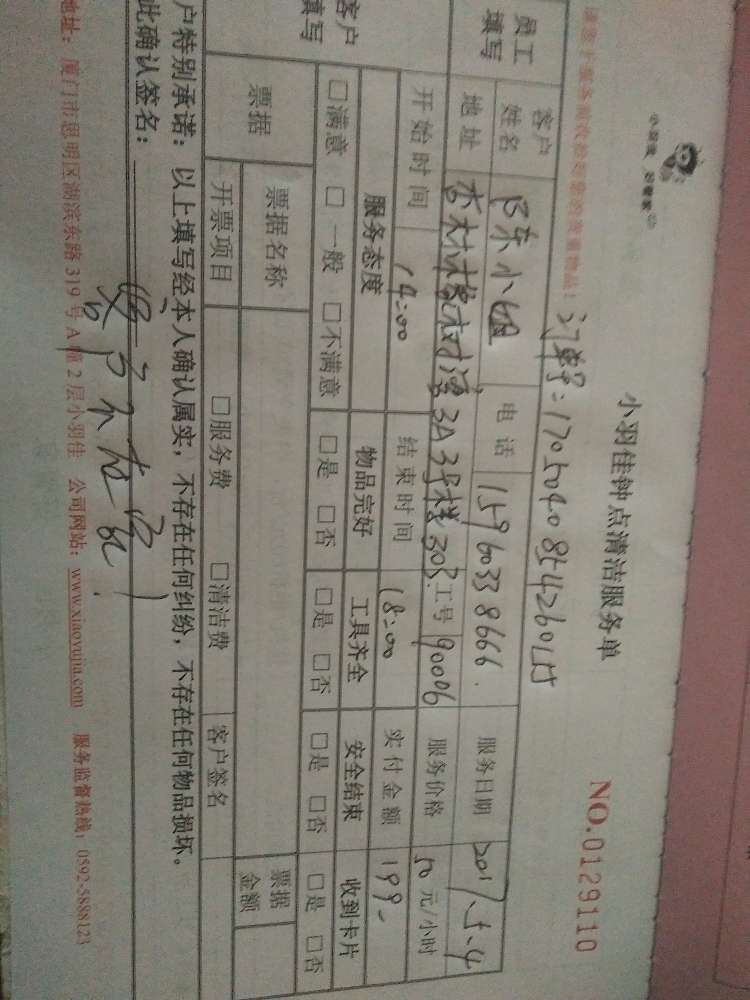 小羽佳钟点清洁服务单
NO.0129110
小羽佳 好管家
订单号:1705040854260
员工填写 客户姓名 陈小姐 电话 15960338666. 服务日期 2017.5.4
地址 杏林 3D 3号楼303. 工号 90006 服务价格 50 元/小时
开始时间 14:00 结束时间 18:00 实付金额 199-
客户填写 服务态度 物品完好 工具齐全 安全结束 收到卡片
□满意 □一般 □不满意 □是 □否 □是 □否 □是 □否 □是 □否
票据 票据名称 票据金额
开票项目 □服务费 □清洁费 客户签名
户特别承诺:以上填写经本人确认属实,不存在任何纠纷,不存在任何物品损坏。
此确认签名:
客户不在家!
地址:厦门市思明区湖滨东路 319 号 A 幢 2 层小羽佳 公司网站:www.xiaoyujia.com 服务监督热线:0592-5898123